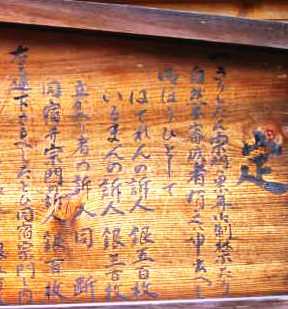 定
きりしたん宗門ハ累年御制禁たり
自然不審成者有之ハ申出へし
御ほうひとして
はてれんの訴人 銀五百枚
いるまんの訴人 銀三百枚
立かへり者の訴人 同断
同宿并宗門の訴人 銀百枚
右之通下さるへしたとひ同宿宗門之内